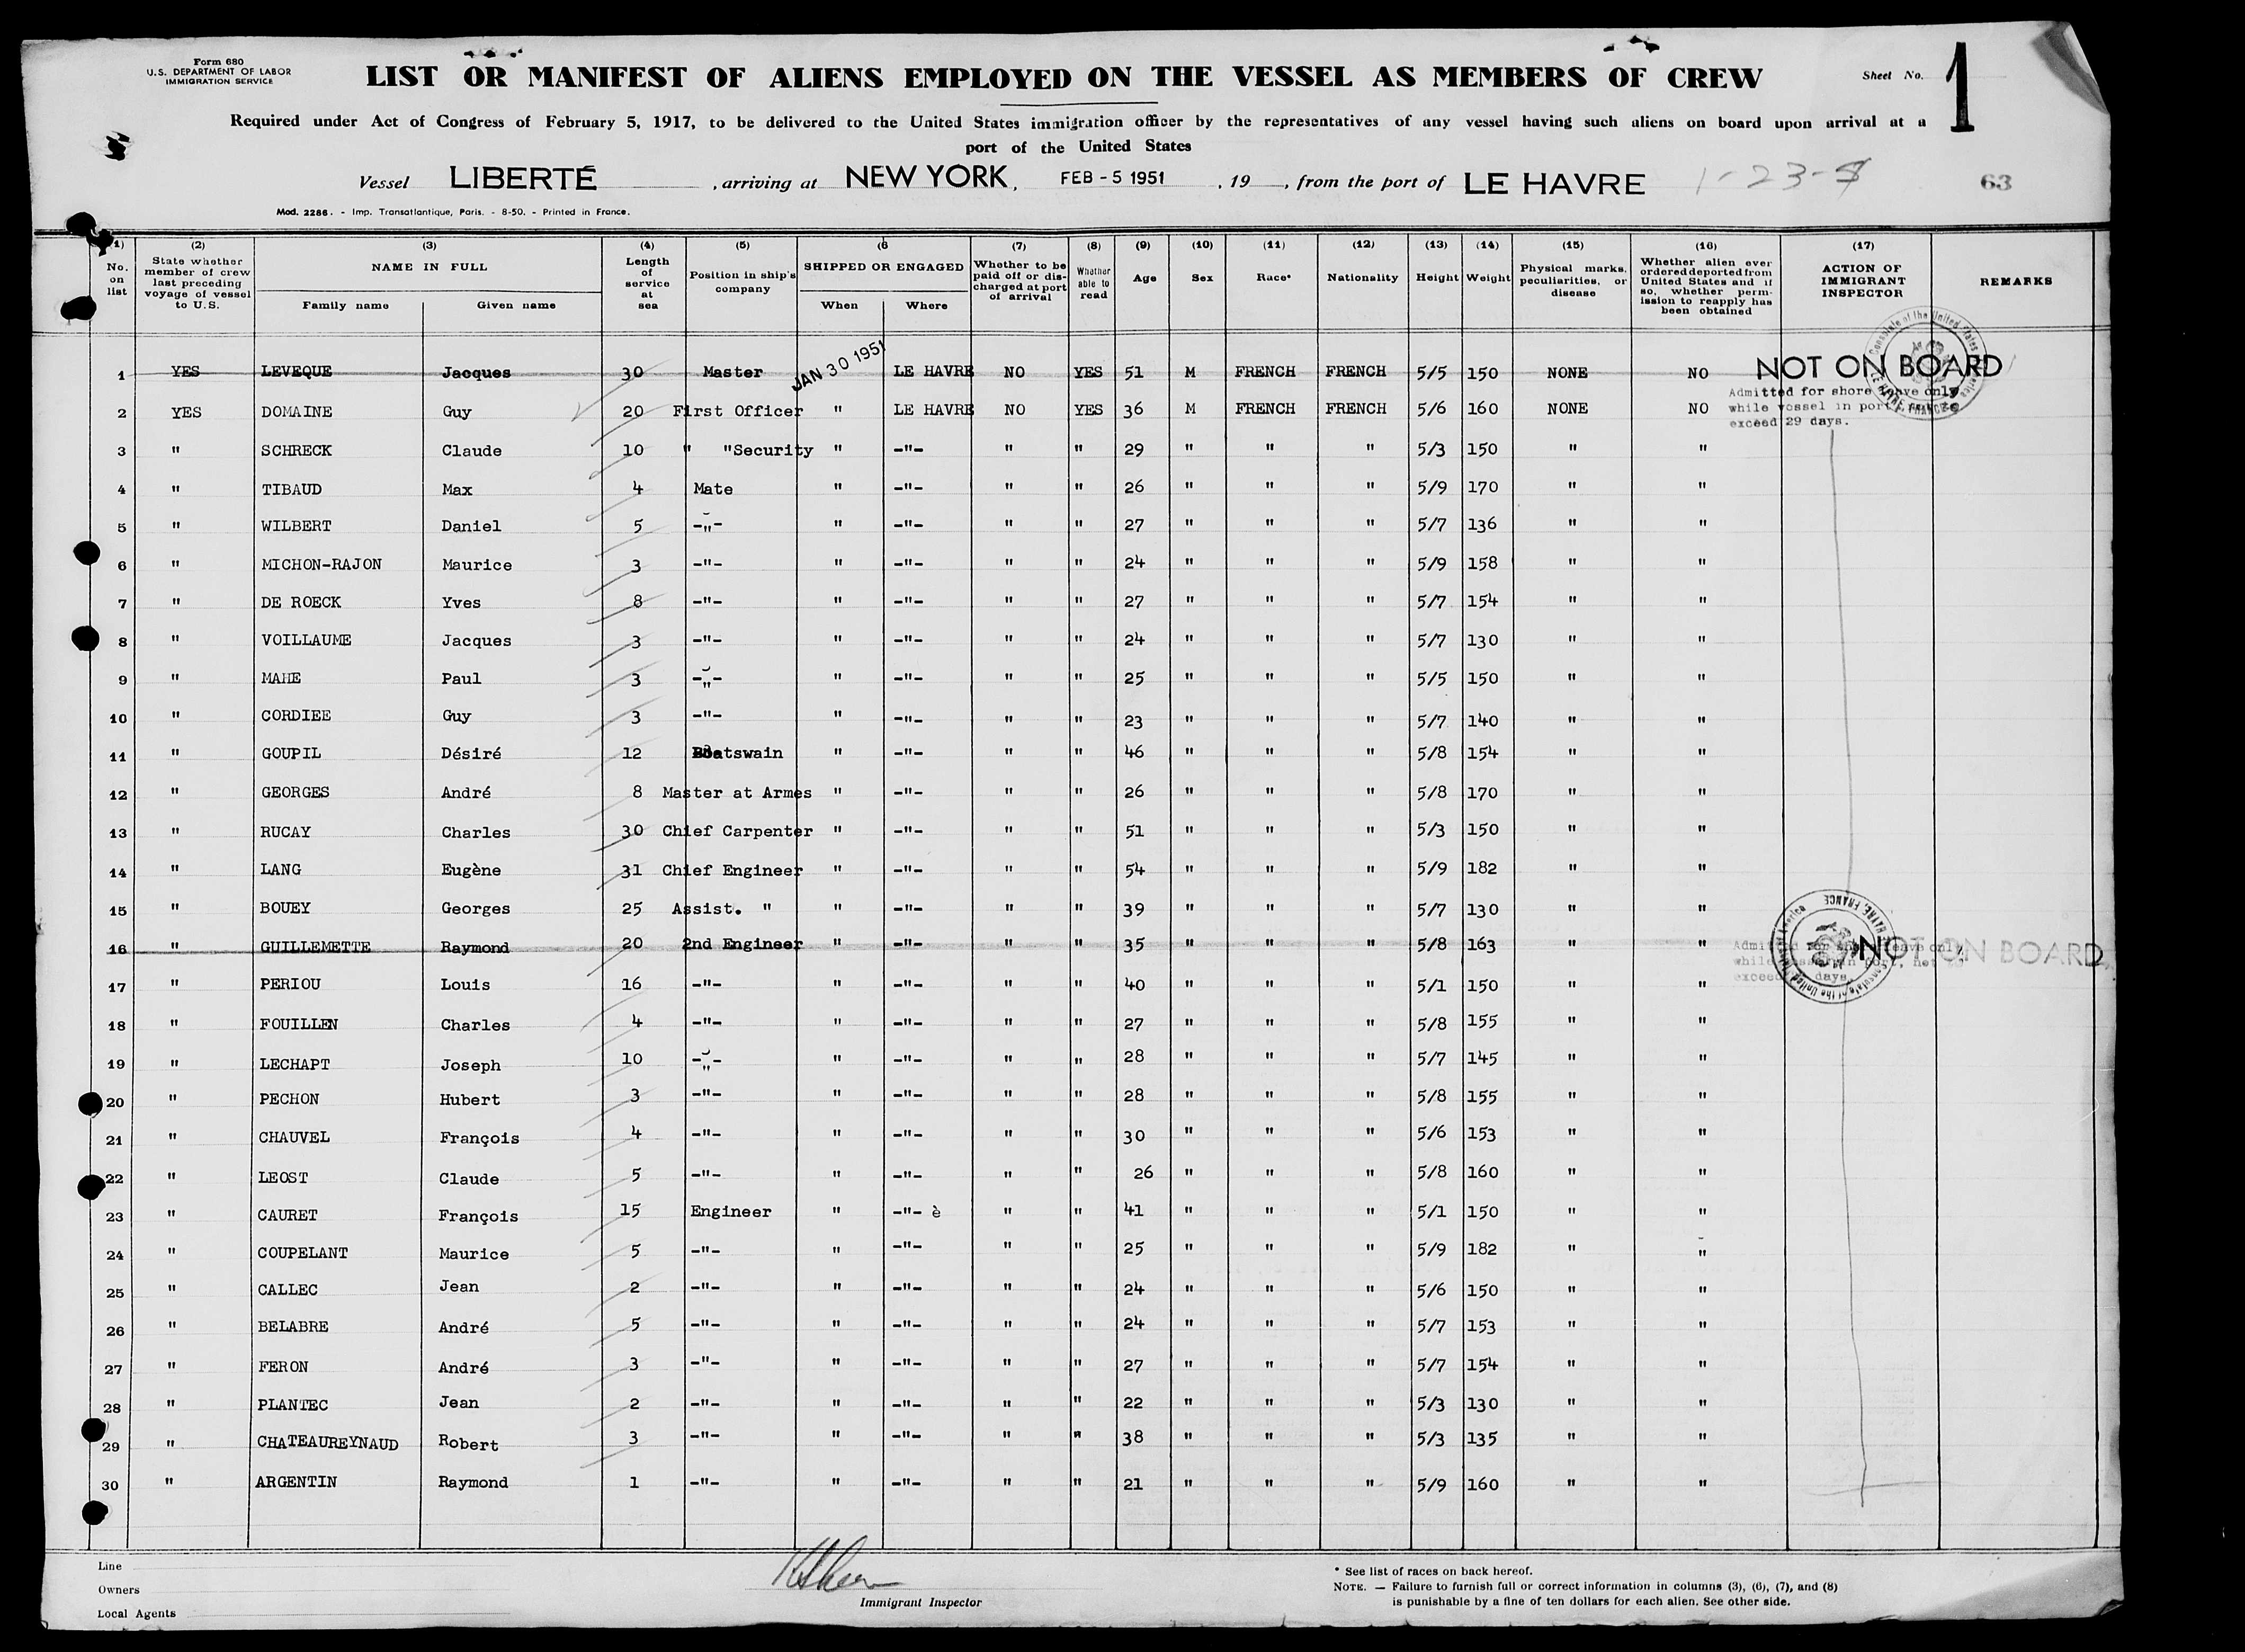 Form 680
U.S. DEPARTMENT OF LABOR
IMMIGRATION SERVICE
LIST OR MANIFEST OF ALIENS EMPLOYED ON THE VESSEL AS MEMBERS OF CREW
Sheet No. 1
Required under Act of Congress of February 5, 1917, to be delivered to the United States immigration officer by the representatives of any vessel having such aliens on board upon arrival at a
port of the United States
Vessel LIBERTÉ, arriving at NEW YORK, FEB - 5 1951, 19, from the port of LE HAVRE 63
Mod. 2286. - Imp. Transatlantique, Paris. - 8-50. - Printed in France.
(1) (2) (3) (4) (5) (6 (7) (8) (9) (10) (11) (12) (13) (14) (15) (16) (17)
No. on list | State whether member of crew last preceding voyage of vessel to U.S. | NAME IN FULL Family name Given name | Length of service at sea | Position in ship's company | SHIPPED OR ENGAGED When Where | Whether to be paid off or discharged at port of arrival | Whether able to read | Age | Sex | Race* | Nationality | Height | Weight | Physical marks, peculiarities, or disease | Whether alien ever ordered deported from United States and if so, whether permission to reapply has been obtained | ACTION OF IMMIGRANT INSPECTOR | REMARKS
1 YES LEVEQUE Jacques 30 Master JAN 30 1951 LE HAVRE NO YES 51 M FRENCH FRENCH 5/5 150 NONE NO NOT ON BOARD
Admitted for shore leave only
2 YES DOMAINE Guy 20 First Officer " LE HAVRE NO YES 36 M FRENCH FRENCH 5/6 160 NONE NO while vessel in port, not to
exceed 29 days.
3 " SCHRECK Claude 10 " "Security " -"- " " 29 " " " 5/3 150 " "
4 " TIBAUD Max 4 Mate " -"- " " 26 " " " 5/9 170 " "
5 " WILBERT Daniel 5 -"- " -"- " " 27 " " " 5/7 136 " "
6 " MICHON-RAJON Maurice 3 -"- " -"- " " 24 " " " 5/9 158 " "
7 " DE ROECK Yves 8 -"- " -"- " " 27 " " " 5/7 154 " "
8 " VOILLAUME Jacques 3 -"- " -"- " " 24 " " " 5/7 130 " "
9 " MAHE Paul 3 -"- " -"- " " 25 " " " 5/5 150 " "
10 " CORDIEE Guy 3 -"- " -"- " " 23 " " " 5/7 140 " "
11 " GOUPIL Désiré 12 Boatswain " -"- " " 46 " " " 5/8 154 " "
12 " GEORGES André 8 Master at Armes " -"- " " 26 " " " 5/8 170 " "
13 " RUCAY Charles 30 Chief Carpenter " -"- " " 51 " " " 5/3 150 " "
14 " LANG Eugène 31 Chief Engineer " -"- " " 54 " " " 5/9 182 " "
15 " BOUEY Georges 25 Assist. " " -"- " " 39 " " " 5/7 130 " "
16 " GUILLEMETTE Raymond 20 2nd Engineer " -"- " " 35 " " " 5/8 163 " " NOT ON BOARD
17 " PERIOU Louis 16 -"- " -"- " " 40 " " " 5/1 150 " "
18 " FOUILLEN Charles 4 -"- " -"- " " 27 " " " 5/8 155 " "
19 " LECHAPT Joseph 10 -"- " -"- " " 28 " " " 5/7 145 " "
20 " PECHON Hubert 3 -"- " -"- " " 28 " " " 5/8 155 " "
21 " CHAUVEL François 4 -"- " -"- " " 30 " " " 5/6 153 " "
22 " LEOST Claude 5 -"- " -"- " " 26 " " " 5/8 160 " "
23 " CAURET François 15 Engineer " -"- è " " 41 " " " 5/1 150 " "
24 " COUPELANT Maurice 5 -"- " -"- " " 25 " " " 5/9 182 " "
25 " CALLEC Jean 2 -"- " -"- " " 24 " " " 5/6 150 " "
26 " BELABRE André 5 -"- " -"- " " 24 " " " 5/7 153 " "
27 " FERON André 3 -"- " -"- " " 27 " " " 5/7 154 " "
28 " PLANTEC Jean 2 -"- " -"- " " 22 " " " 5/3 130 " "
29 " CHATEAUREYNAUD Robert 3 -"- " -"- " " 38 " " " 5/3 135 " "
30 " ARGENTIN Raymond 1 -"- " -"- " " 21 " " " 5/9 160 " "
Line
Owners
Local Agents
Immigrant Inspector
* See list of races on back hereof.
NOTE. — Failure to furnish full or correct information in columns (3), (6), (7), and (8)
is punishable by a fine of ten dollars for each alien. See other side.